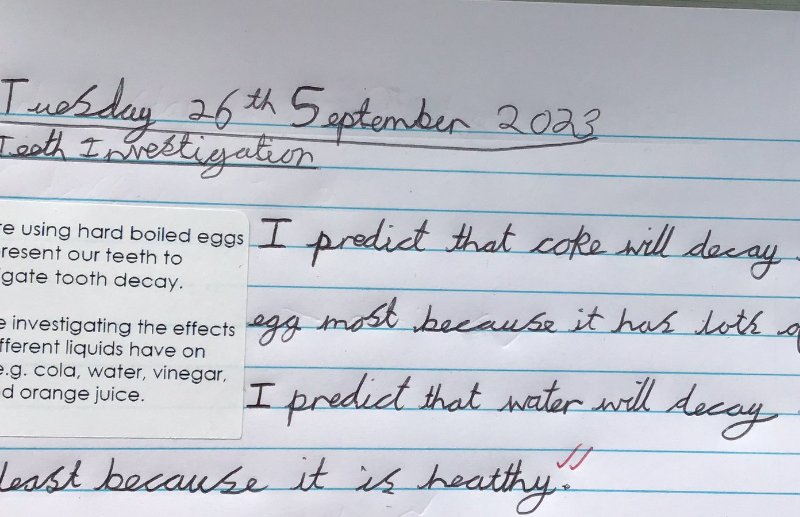 Tuesday 26th September 2023
Teeth Investigation
re using hard boiled eggs
resent our teeth to
gate tooth decay.
e investigating the effects
fferent liquids have on
e.g. cola, water, vinegar,
d orange juice.
I predict that coke will decay
egg most because it has lots
I predict that water will decay
least because it is healthy.